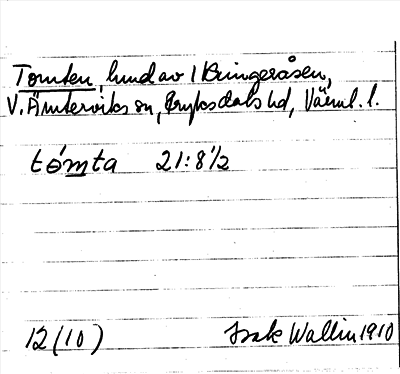 Tomten, hmd av 1 Kringeråsen,
V. Ämterviks sn, Fryksdals hd, Värml. l.
tómta 21:8½
12 (10) Isak Wallin 1910